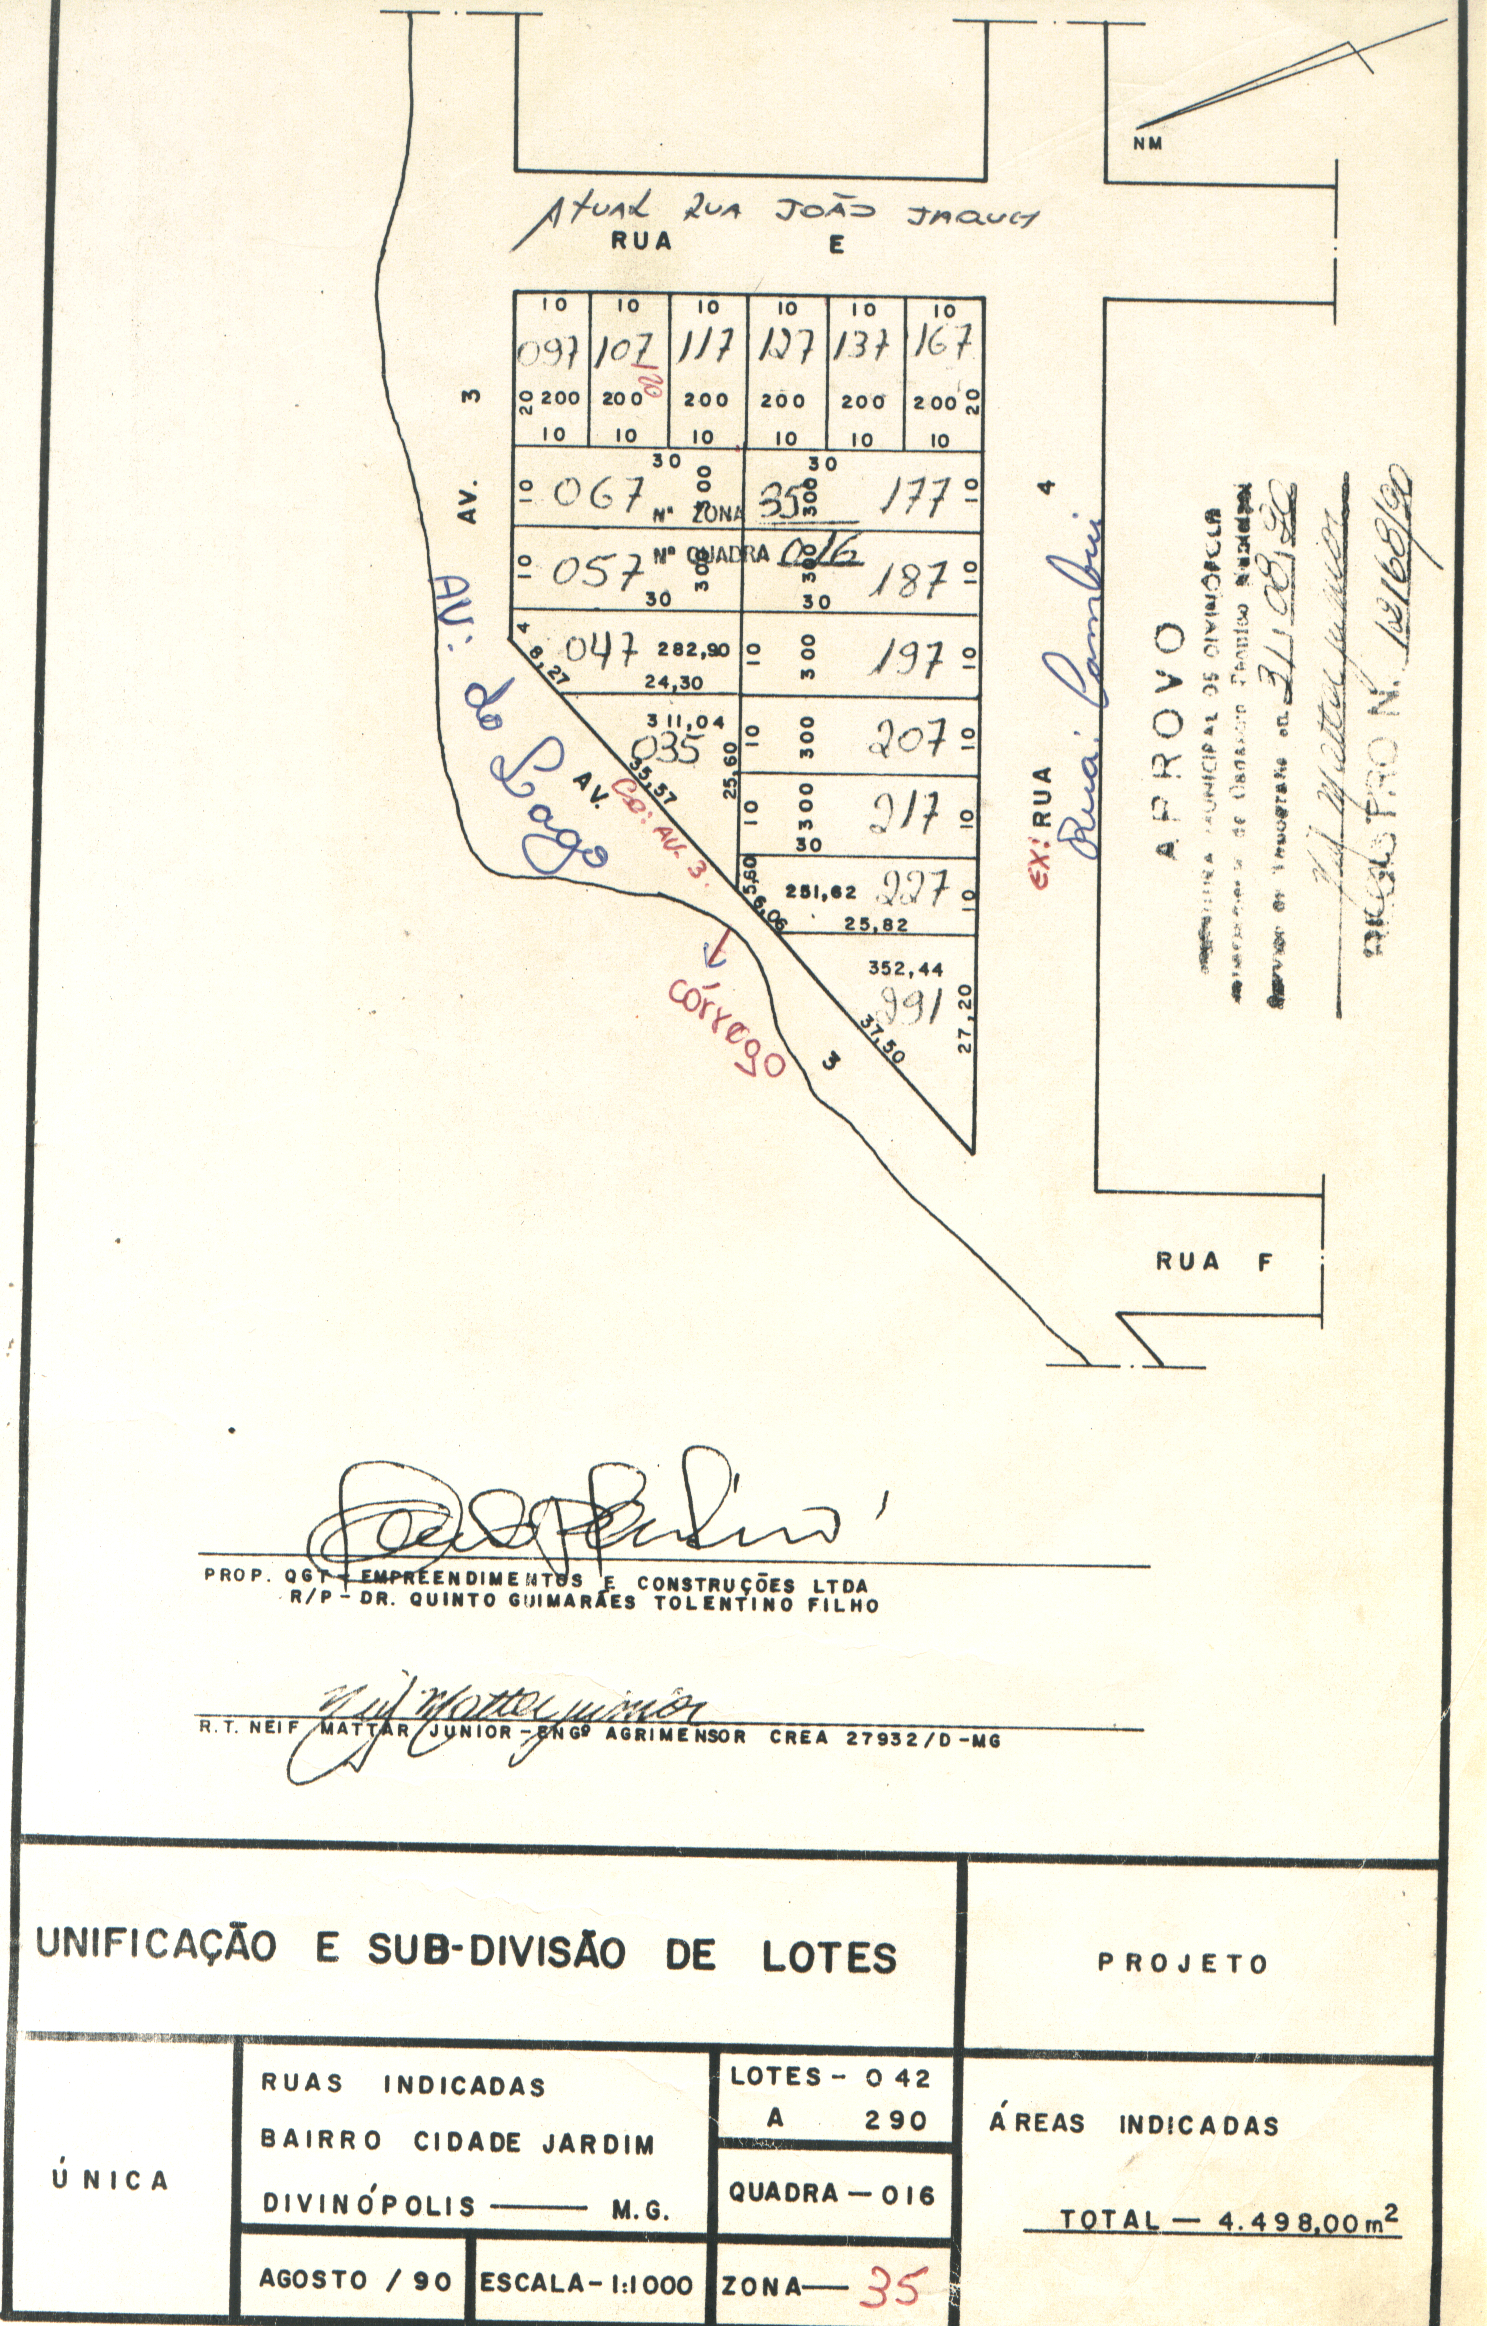 NM
ATUAL RUA JOÃO JAQUES
RUA E
10 10 10 10 10 10
097 107 117 127 137 167
120
20 200 200 200 200 200 200 20
10 10 10 10 10 10
30 30
10 067 300 300 177 10
Nº ZONA 35
Nº QUADRA 016
10 057 300 300 187 10
30 30
4 047 282,90 10 300 197 10
8,27 24,30
311,04
035 25,60 10 300 207 10
35,57
10 300 217 10
30
5,60 251,62 227 10
6,06 25,82
352,44
291
37,50 27,20
AV. 3
AV: do Lago
AV. 3
Ex: AV. 3.
córrego
EX: RUA 4
Rua: Cambui
APROVO
MUNICIPAL DE DIVINÓPOLIS
de Cadastro Técnico Municipal
31/08/90
Neif Mattar Junior
N. 12168/90
RUA F
PROP. QGT - EMPREENDIMENTOS E CONSTRUÇÕES LTDA
R/P - DR. QUINTO GUIMARÃES TOLENTINO FILHO
Neif Mattar Junior
R.T. NEIF MATTAR JUNIOR - ENGº AGRIMENSOR CREA 27932/D-MG
UNIFICAÇÃO E SUB-DIVISÃO DE LOTES
PROJETO
ÚNICA
RUAS INDICADAS
BAIRRO CIDADE JARDIM
DIVINÓPOLIS —— M.G.
AGOSTO / 90
ESCALA - 1:1000
LOTES - 042
A 290
QUADRA — 016
ZONA — 35
ÁREAS INDICADAS
TOTAL — 4.498,00 m²